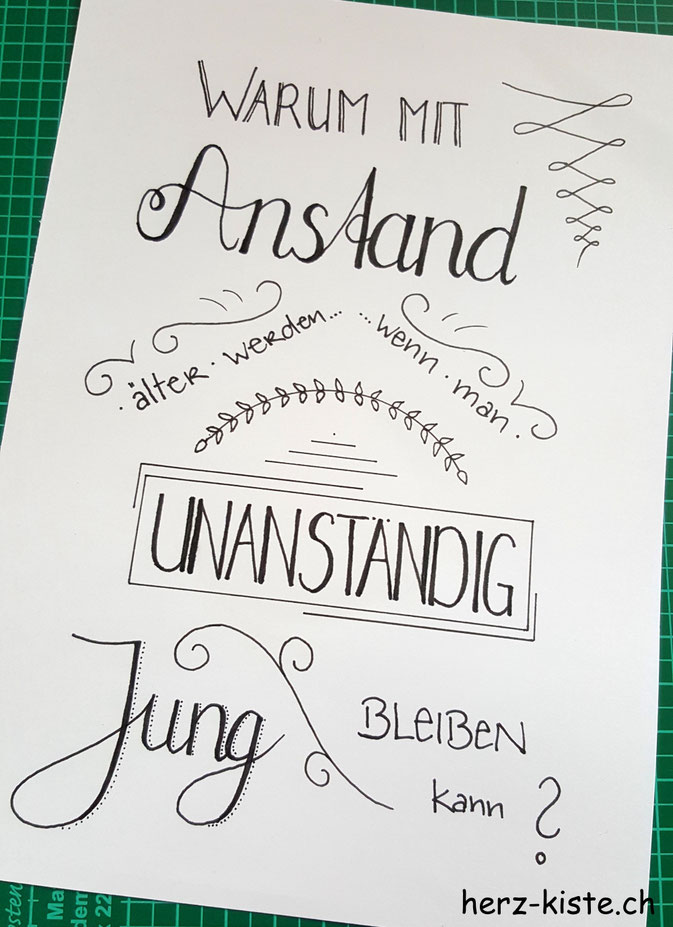 WARUM MIT
Anstand
· älter · werden... ...wenn · man ·
UNANSTÄNDIG
Jung
BLEIBEN
kann ?
herz-kiste.ch